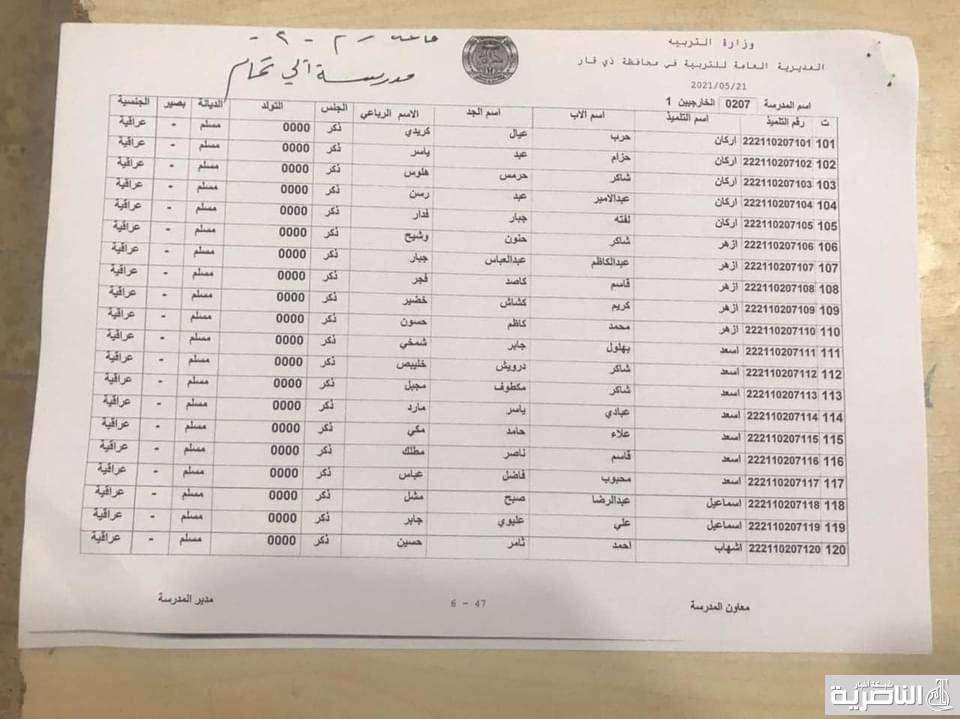 وزارة التربية
المديرية العامة للتربية في محافظة ذي قار
2021/05/21
مدرسة ابي تمام
اسم المدرسة 0207 الخارجيين 1
ت رقم التلميذ اسم التلميذ اسم الاب اسم الجد الاسم الرباعي الجنس التولد الديانة بصير الجنسية
101 222110207101 اركان حرب عيال كريدي ذكر 0000 مسلم - عراقية
102 222110207102 اركان حزام عبد ياسر ذكر 0000 مسلم - عراقية
103 222110207103 اركان شاكر حرمس هلوس ذكر 0000 مسلم - عراقية
104 222110207104 اركان عبدالامير عبد رسن ذكر 0000 مسلم - عراقية
105 222110207105 اركان لفته جبار فدار ذكر 0000 مسلم - عراقية
106 222110207106 ازهر شاكر حنون وشيح ذكر 0000 مسلم - عراقية
107 222110207107 ازهر عبدالكاظم عبدالعباس جبار ذكر 0000 مسلم - عراقية
108 222110207108 ازهر قاسم كاصد فجر ذكر 0000 مسلم - عراقية
109 222110207109 ازهر كريم كشاش خضير ذكر 0000 مسلم - عراقية
110 222110207110 ازهر محمد كاظم حسون ذكر 0000 مسلم - عراقية
111 222110207111 اسعد بهلول جابر شمخي ذكر 0000 مسلم - عراقية
112 222110207112 اسعد شاكر درويش خليبص ذكر 0000 مسلم - عراقية
113 222110207113 اسعد شاكر مكطوف مجبل ذكر 0000 مسلم - عراقية
114 222110207114 اسعد عبادي ياسر مارد ذكر 0000 مسلم - عراقية
115 222110207115 اسعد علاء حامد مكي ذكر 0000 مسلم - عراقية
116 222110207116 اسعد قاسم ناصر مطلك ذكر 0000 مسلم - عراقية
117 222110207117 اسعد محبوب فاضل عباس ذكر 0000 مسلم - عراقية
118 222110207118 اسماعيل عبدالرضا صبح مشل ذكر 0000 مسلم - عراقية
119 222110207119 اسماعيل علي عليوي جابر ذكر 0000 مسلم - عراقية
120 222110207120 اشهاب احمد ثامر حسين ذكر 0000 مسلم - عراقية
معاون المدرسة 6 - 47 مدير المدرسة
شبكة أخبار
الناصرية